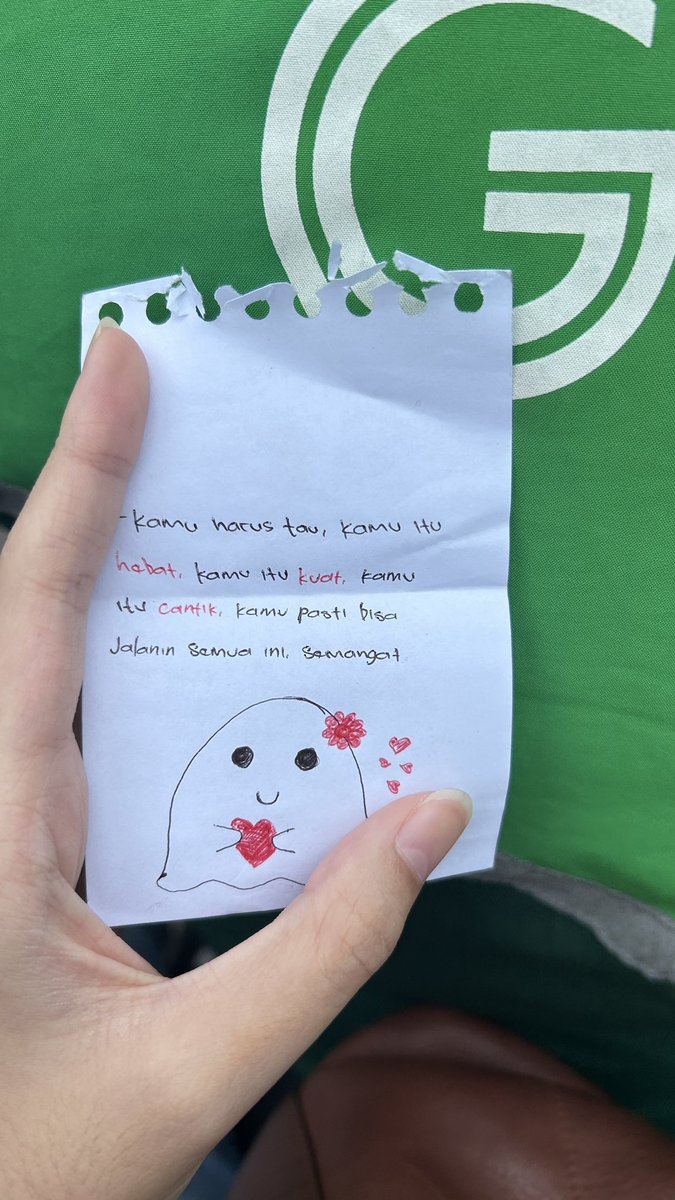 G
-kamu harus tau, kamu itu
hebat, kamu itu kuat, kamu
itu cantik, kamu pasti bisa
Jalanin semua ini. semangat